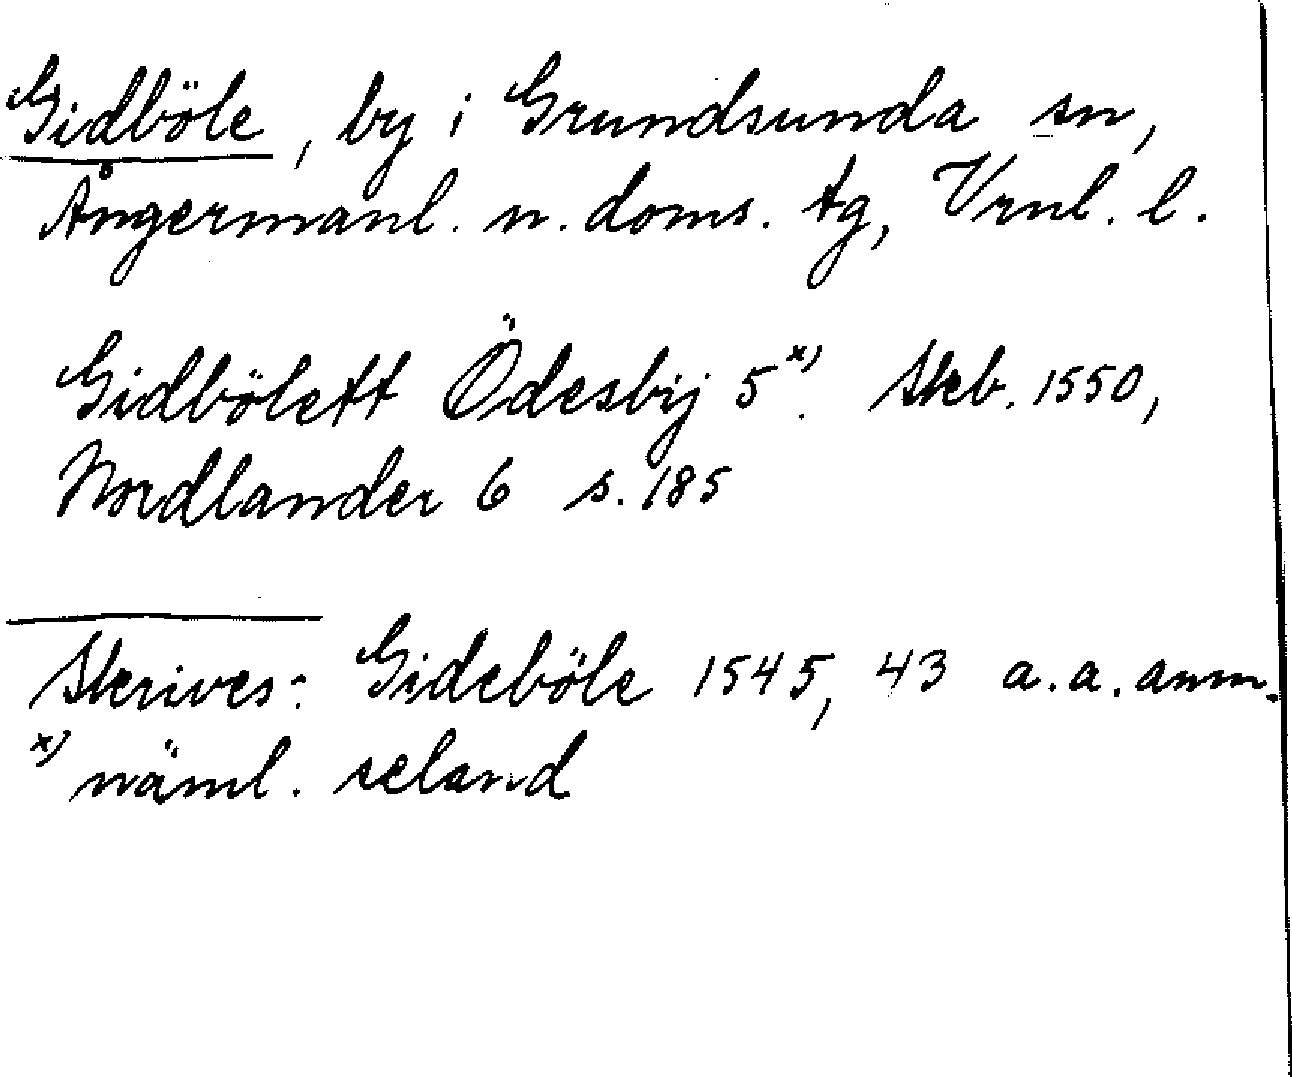 Gidböle, by i Grundsunda sn,
Ångermanl. n. doms. tg, Vrnl. l.
Gidbölett Ödesbij 5x). Skb. 1550,
Nordlander 6 s. 185
Skrives: Gideböle 1545, 43 a.a. anm.
x) näml. seland